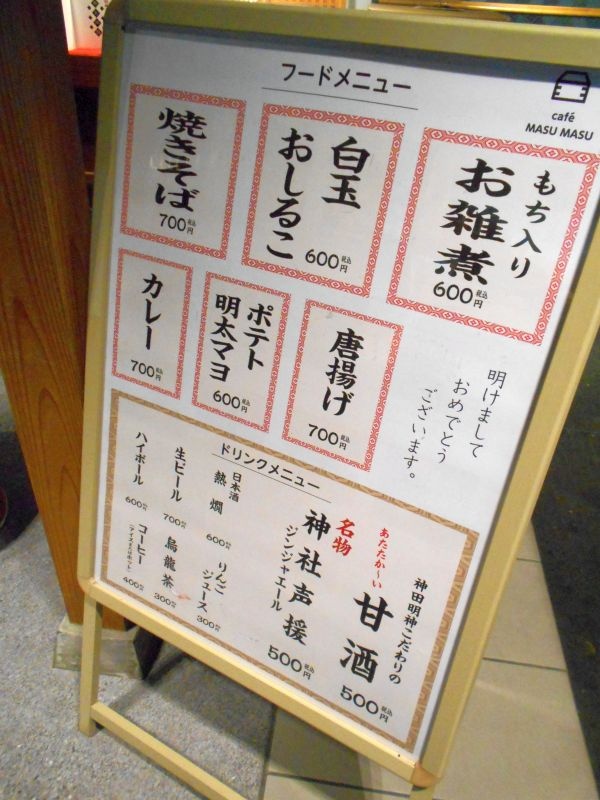 フードメニュー
café
MASU MASU
もち入り
お雑煮
600円税込
白玉
おしるこ
600税込円
焼きそば
700税込円
明けまして
おめでとう
ございます。
唐揚げ
700税込円
ポテト
明太マヨ
600税込円
カレー
700税込円
ドリンクメニュー
神田明神こだわりの
あたたか〜い
甘酒
500税込円
名物
神社声援
ジンジャエール
500税込円
日本酒
熱燗
600税込円
りんご
ジュース
300税込円
生ビール
700税込円
烏龍茶
300税込円
ハイボール
600税込円
コーヒー
(アイスまたはホット)
400税込円